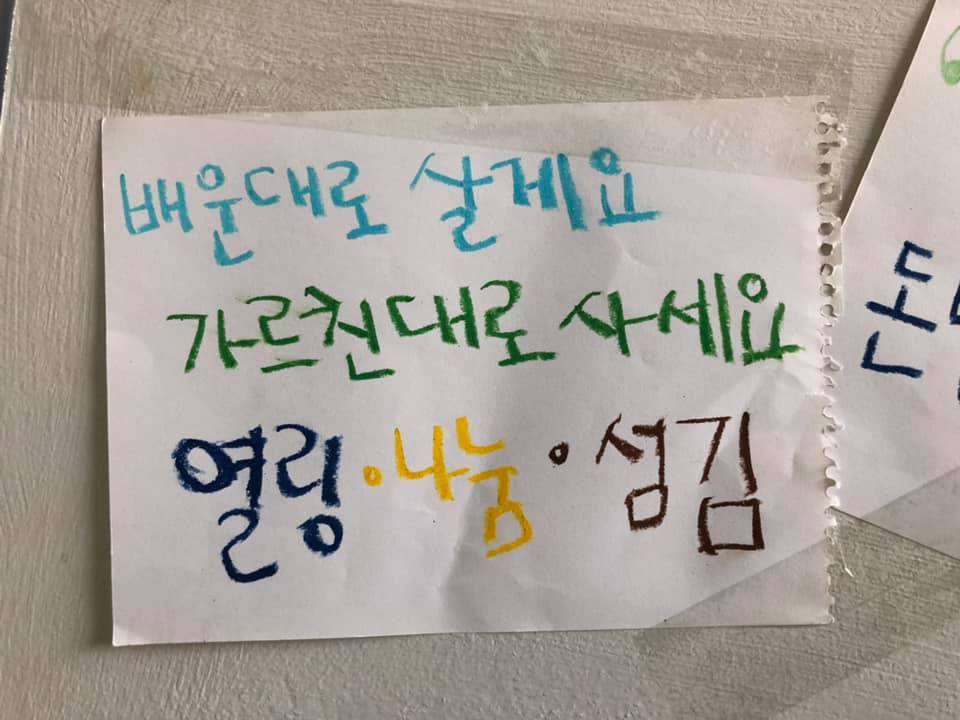 배운대로 살게요
가르친대로 사세요
열링·나눔·섬김